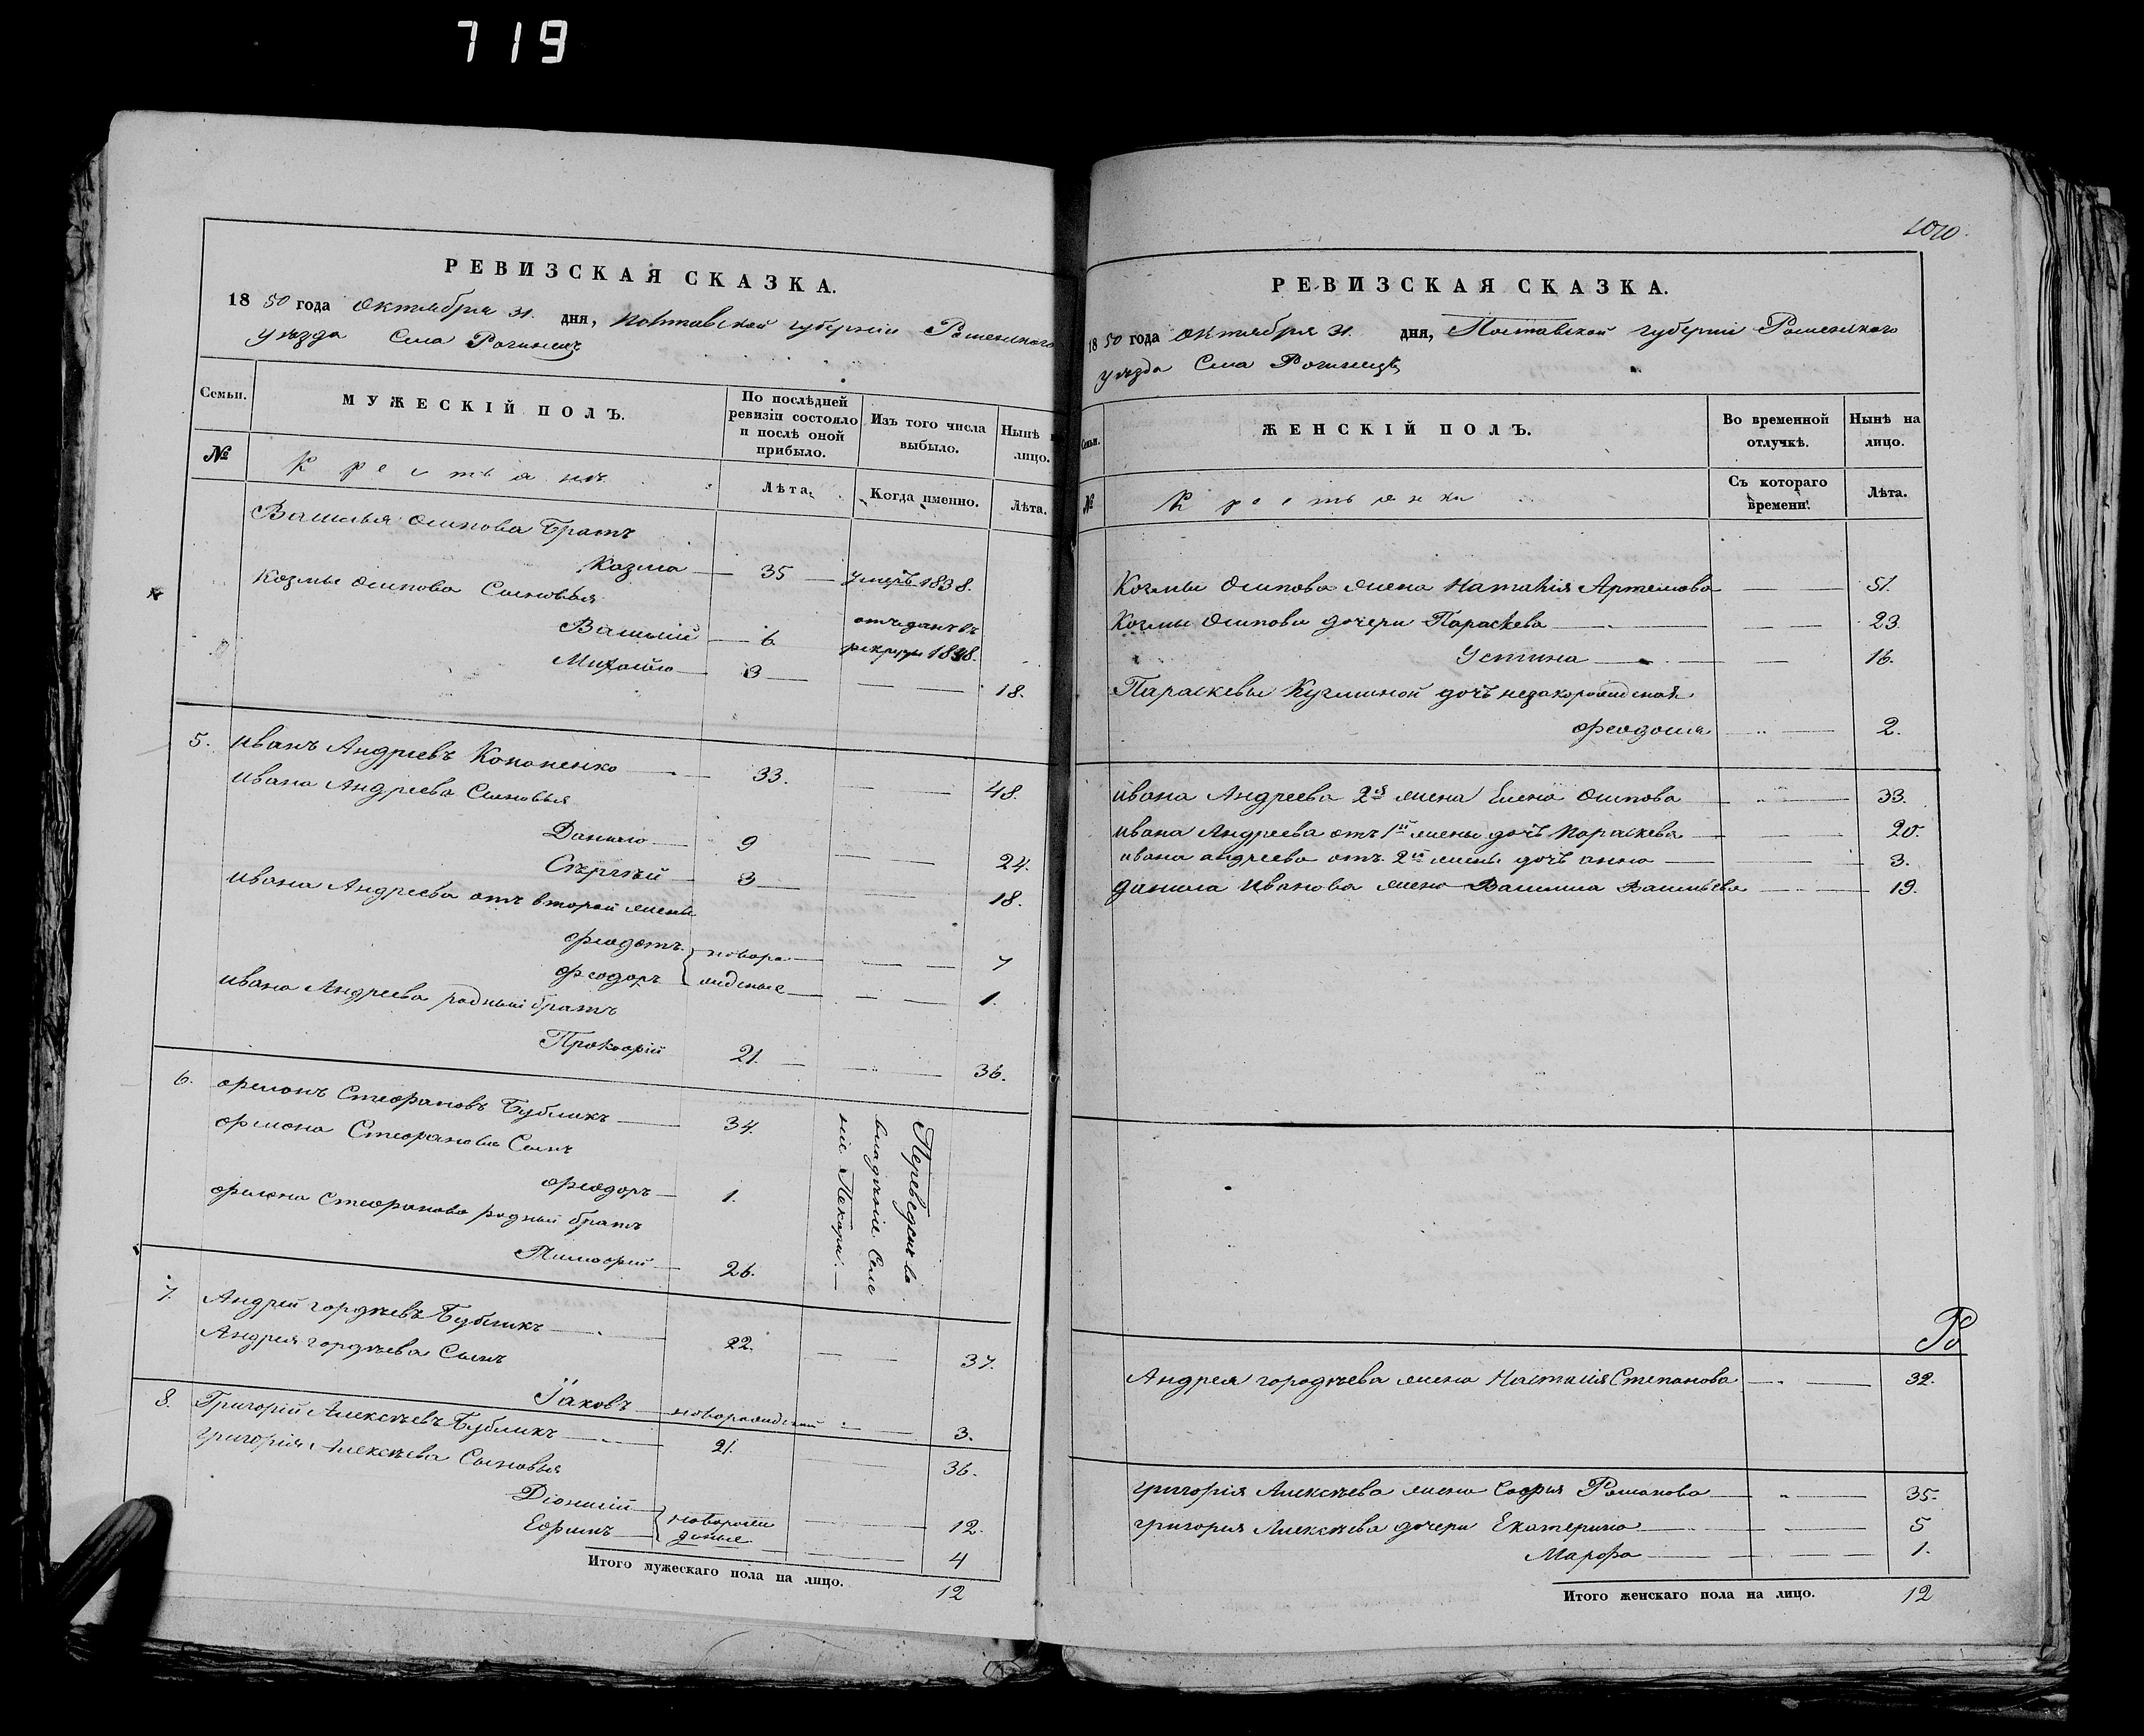 719
РЕВИЗСКАЯ СКАЗКА.
1850 года Октября 31. дня, Полтавской губернии Роменского
уѣзда Села Рогинецъ
Семьи. МУЖЕСКІЙ ПОЛЪ. По послѣдней ревизіи состояло и послѣ оной прибыло. Изъ того числа выбыло. Нынѣ на лицо.
№ Крестьянъ Лѣта. Когда именно. Лѣта.
Василья Осипова Братъ
Козма 35 умеръ 1838.
Козмы Осипова Сыновья
Василій 6 отъданъ въ рекруты 1848.
Михайло 3 18.
5. Иванъ Андреевъ Кононенко 33. 48.
Ивана Андреева Сыновья
Данило 9 24.
Сергѣй 3 18.
Ивана Андреева отъ второй жены
Феодотъ новоро 7
Феодоръ жденые 1.
Ивана Андреева родный братъ
Прокофій 21. 36.
6. Филонъ Стефановъ Бубликъ 34.
Филона Стефанова Сынъ
Феодоръ 1.
Филона Стефанова родный братъ
Тимофей 26.
Переведены во
владѣніе Селе
ніе Пекари.
7. Андрей Гордѣевъ Бубликъ 22. 37.
Андрея Гордѣева Сынъ
Іаковъ новорожденый 3.
8. Григорій Алексѣевъ Бубликъ 21. 36.
Григорія Алексѣева Сыновья
Діонисій новорож 12.
Ефимъ деные 4
Итого мужескаго пола на лицо. 12
1010.
РЕВИЗСКАЯ СКАЗКА.
1850 года Октября 31. дня, Полтавской губерніи Роменского
уѣзда Села Рогинецъ
Семьи. ЖЕНСКІЙ ПОЛЪ. Во временной отлучкѣ. Нынѣ на лицо.
№ Крестьянки Съ котораго времени. Лѣта.
Козмы Осипова жена Наталія Артемова 51.
Козмы Осипова дочери Параскева 23.
Устина 16.
Параскевы Кузминой дочь незаконорожденая
Феодосия 2.
Ивана Андреева 2я жена Елена Осипова 33.
Ивана Андреева отъ 1й жены дочь Параскева 20.
Ивана Андреева отъ 2й жены дочь Анна 3.
Данила Иванова жена Василиса Васильева 19.
Ро
Андрея Гордѣева жена Настасія Степанова 32.
Григорія Алексѣева жена София Романова 35.
Григория Алексѣева дочери Екатерина 5
Марфа 1.
Итого женскаго пола на лицо. 12